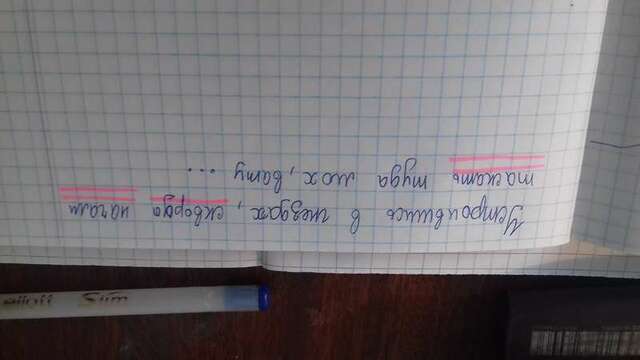 Устроившись в гнездах, скворцы начали
таскать туда мох, вату ...